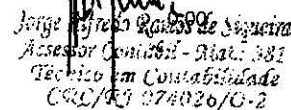 Jorge Alfredo Ramos de Siqueira
Assessor Contábil - Mat.: 981
Técnico em Contabilidade
CRC/RJ 074026/O-2